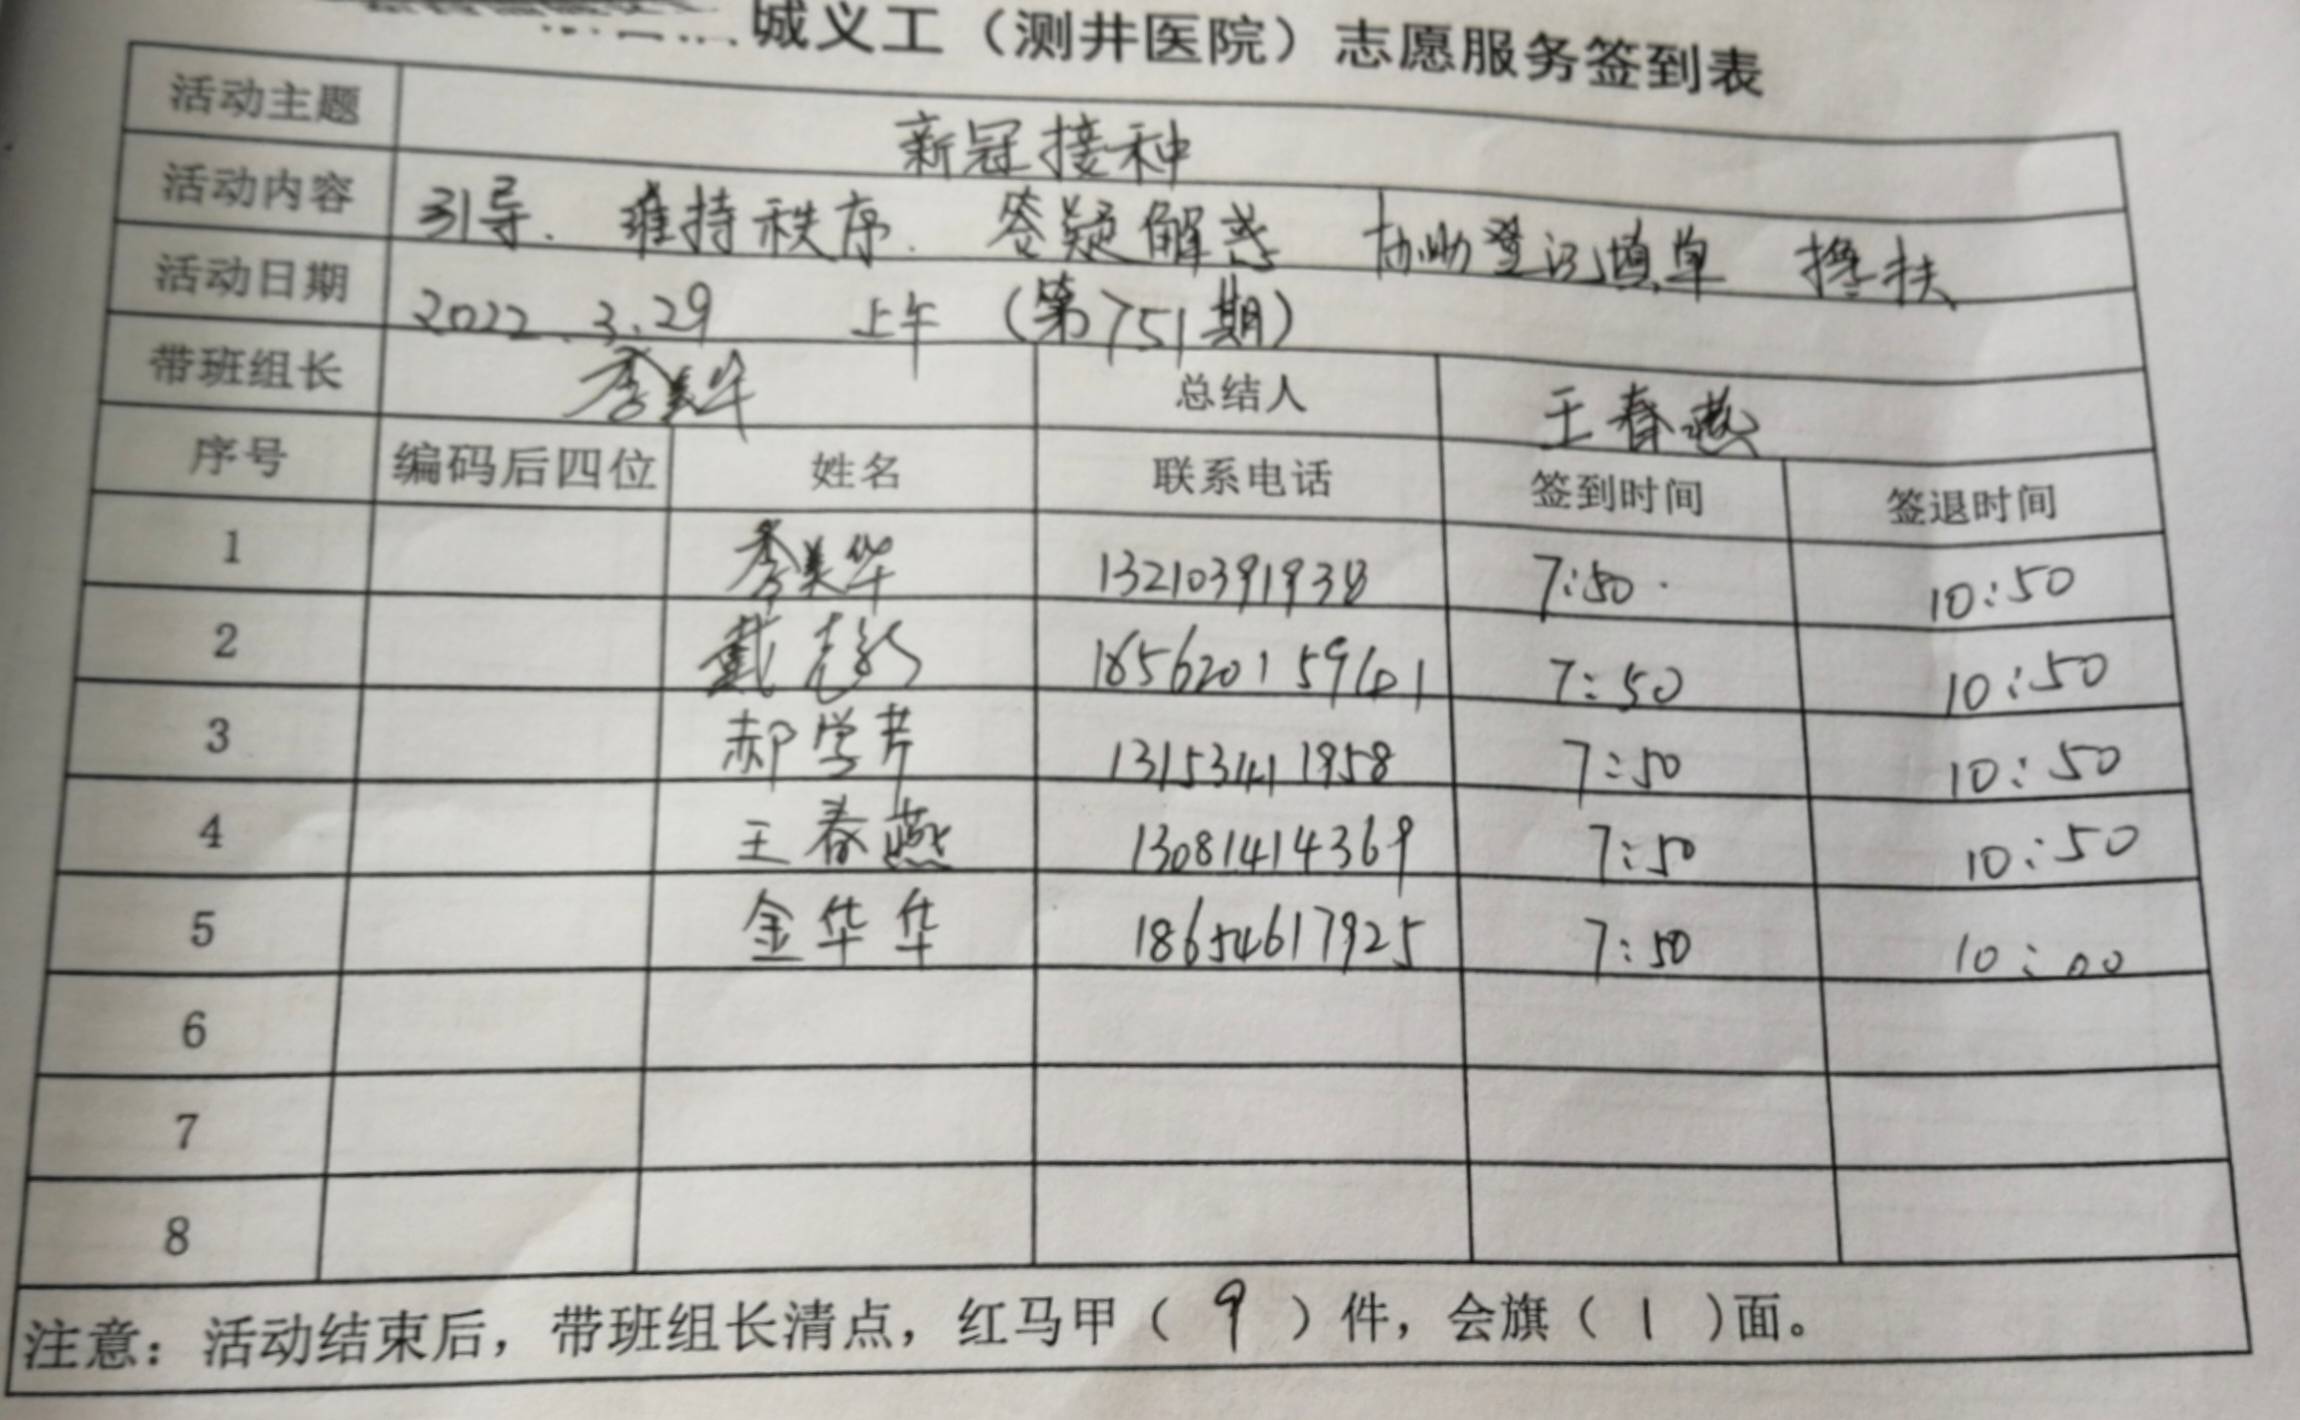 城义工（测井医院）志愿服务签到表
活动主题 新冠接种
活动内容 引导. 维持秩序. 答疑解惑 协助登记填单 搀扶
活动日期 2022.3.29 上午（第751期）
带班组长 李美华 总结人 王春燕
序号 编码后四位 姓名 联系电话 签到时间 签退时间
1 李美华 13210391938 7:50 10:50
2 戴 7:50 10:50
3 郝学芹 13153411958 7:50 10:50
4 王春燕 13081414369 7:50 10:50
5 金华华 18654617925 7:50 10:00
6
7
8
注意：活动结束后，带班组长清点，红马甲（ 9 ）件，会旗（ 1 ）面。